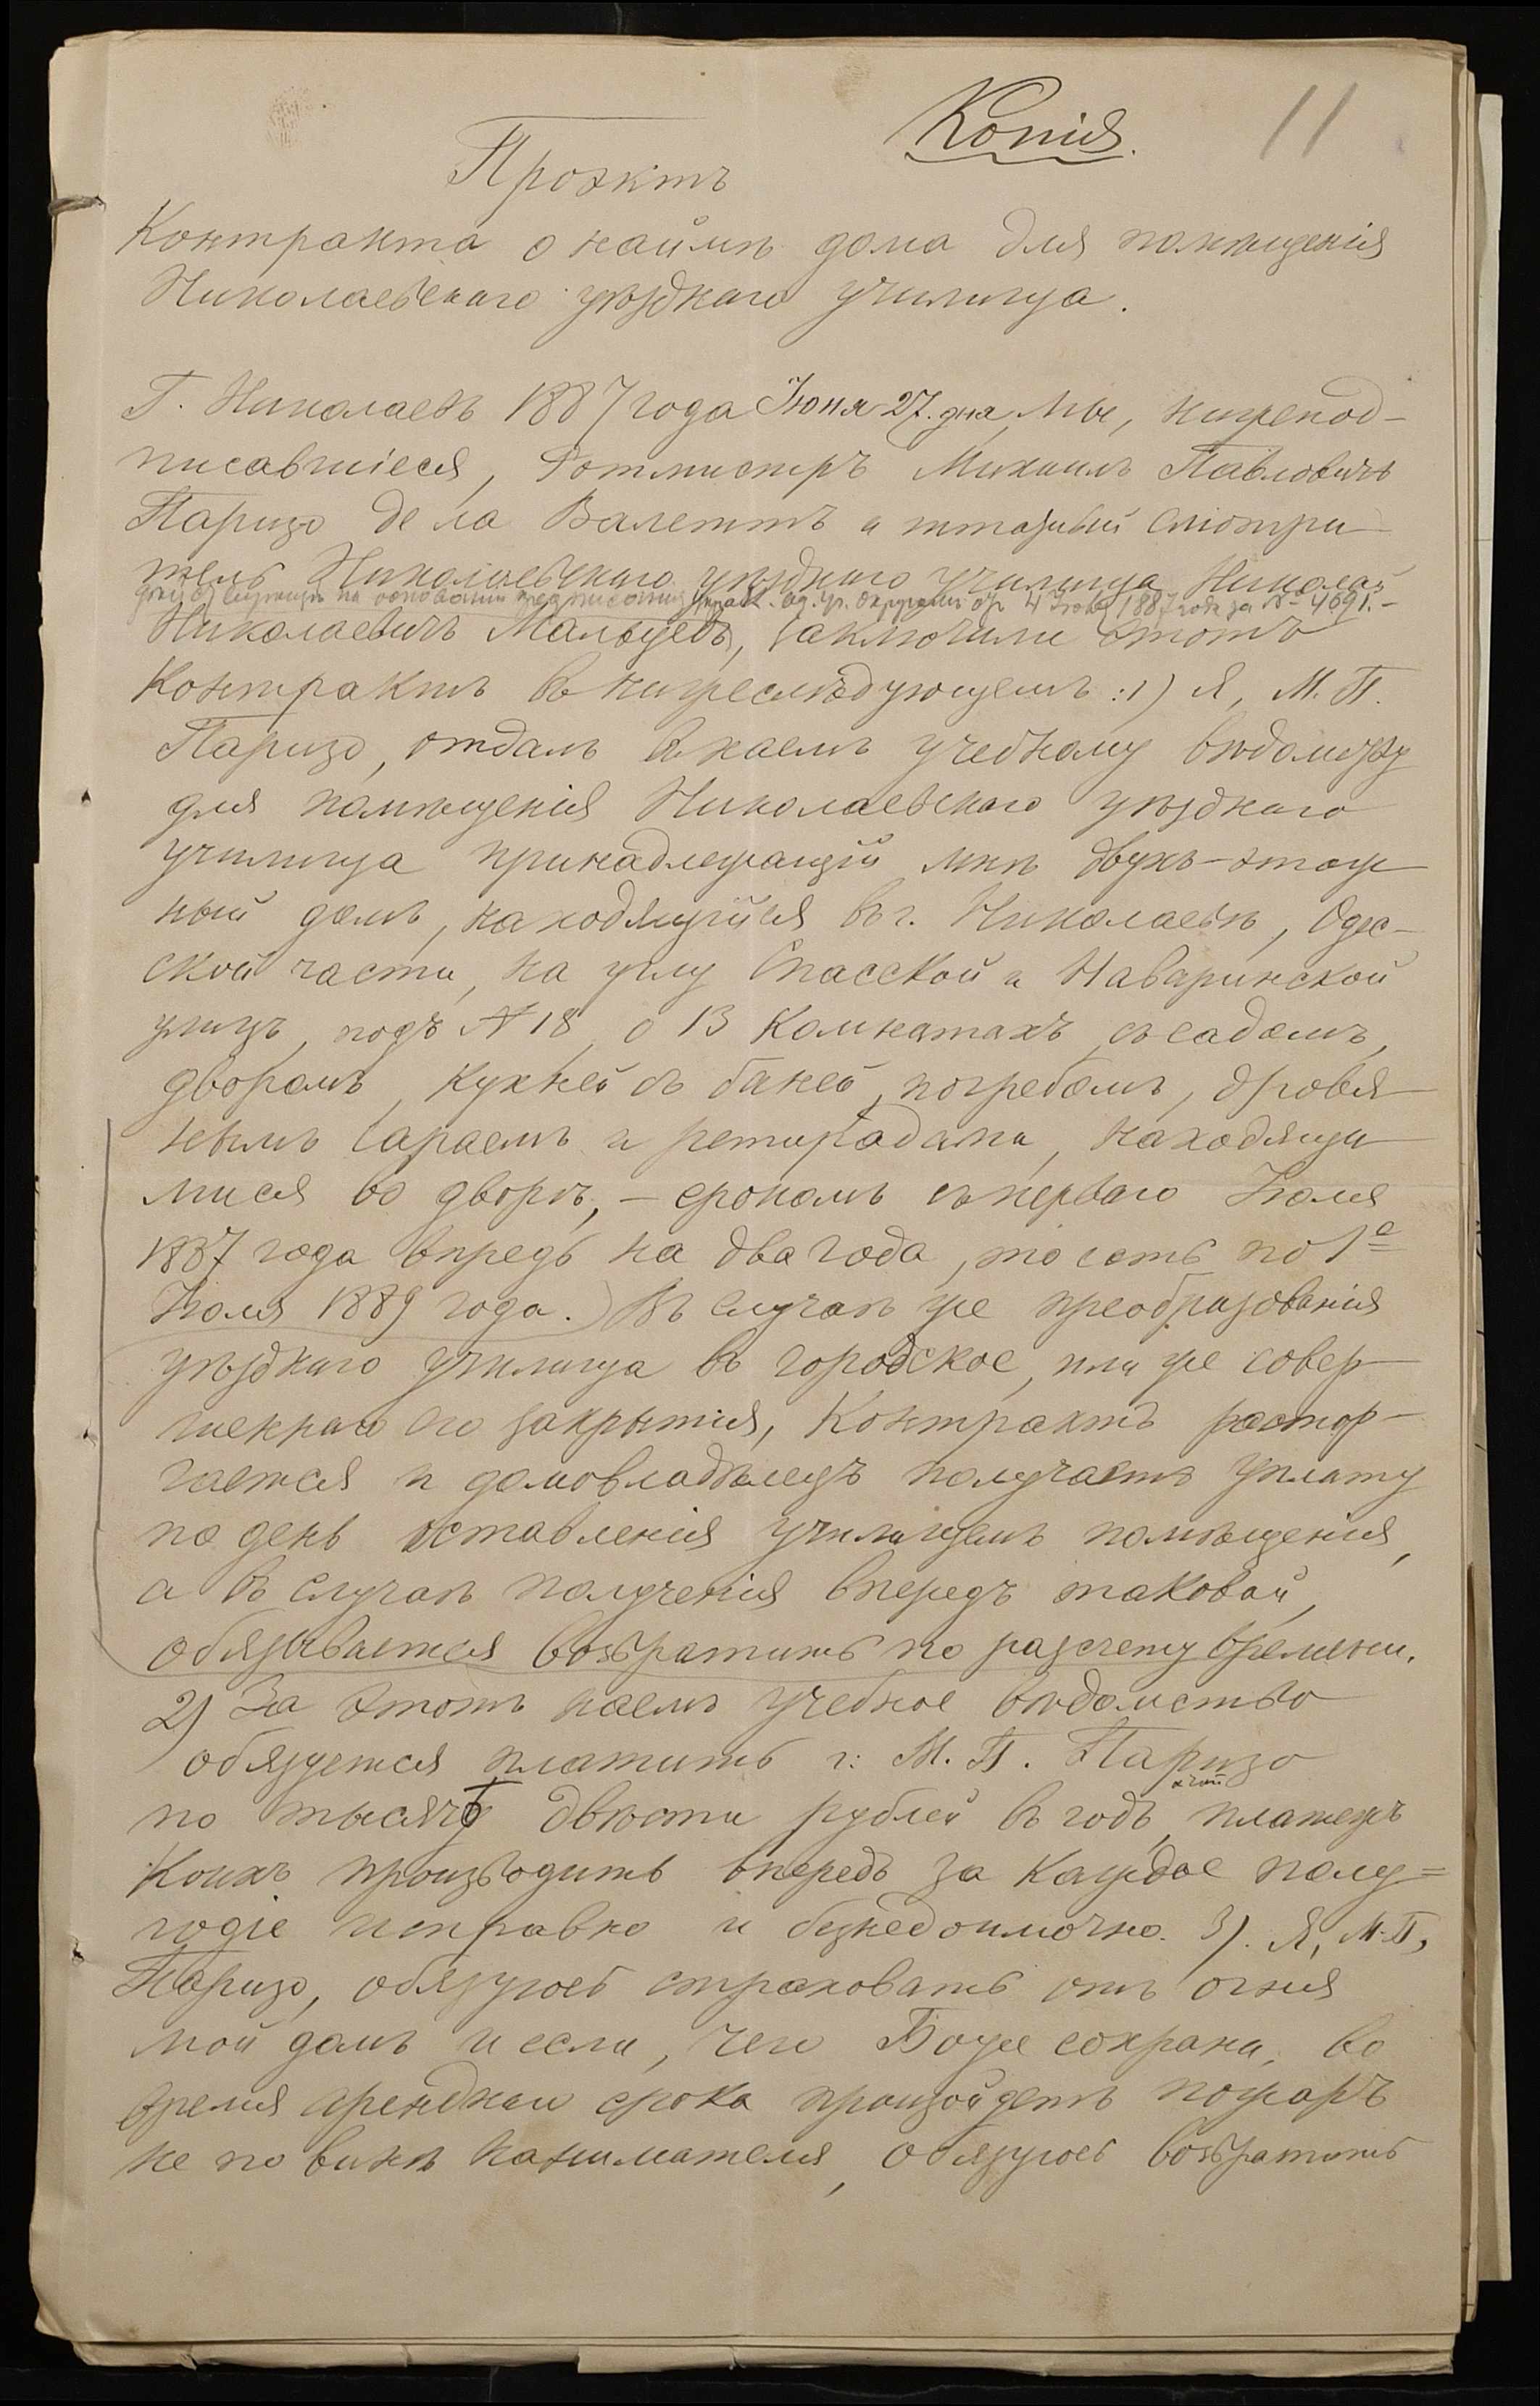 Копія.
11
Проэктъ
Контракта о наймѣ дома для помѣщенія
Николаевскаго уѣзднаго училища.
Г. Николаевъ 1887 года Іюня 27. дня, Мы, нижепод-
писавшіеся, Ротмистръ Михаилъ Павловичъ
Паризо де ла Валеттъ и штатный смотри
тель Николаевскаго уѣзднаго училища Николай
дѣйствующій на основаніи предписанія Управл. Од. уч. округомъ отъ 4 Іюня 1887 года за № 4691. -
Николаевичъ Мальцевъ, заключили этотъ
Контрактъ въ нижеслѣдующемъ: 1) Я, М. П.
Паризо, отдалъ въ наемъ учебному вѣдомству
для помѣщенія Николаевскаго уѣзднаго
училища принадлежащій мнѣ двухъ-этаж
ный домъ, находящійся въ г. Николаевѣ, Одес-
ской части, на углу Спасской и Наваринской
улицъ, подъ № 18, о 13 комнатахъ, съ садомъ,
дворомъ, кухней съ баней, погребомъ, дровя
нымъ сараемъ и ретирадами, находящи
мися во дворѣ, - срокомъ съ перваго Іюля
1887 года впредь на два года, то есть по 1е
Іюля 1889 года.) Въ случаѣ же преобразованія
уѣзднаго училища въ городское, или же совер
шеннаго его закрытія, Контрактъ растор-
гается и домовладѣлецъ получаетъ уплату
по день оставленія училищемъ помѣщенія,
а въ случаѣ полученія впередъ таковой,
обязывается возвратить по разсчету времени.
2) За этотъ наемъ учебное вѣдомство
обязуется платить г: М. П. Паризо
по тысячѣ двѣсти рублей въ годъ, платежъ
коихъ производить впередъ за каждое полу=
годіе исправно и безнедоимочно. 3). Я, М. П,
Паризо, обязуюсь страховать отъ огня
мой домъ и если, чего Боже сохрани, во
время аренднаго срока произойдетъ пожаръ
не по винѣ нанимателя, обязуюсь возвратить